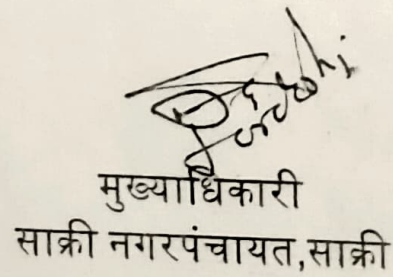 मुख्याधिकारी
साक्री नगरपंचायत,साक्री